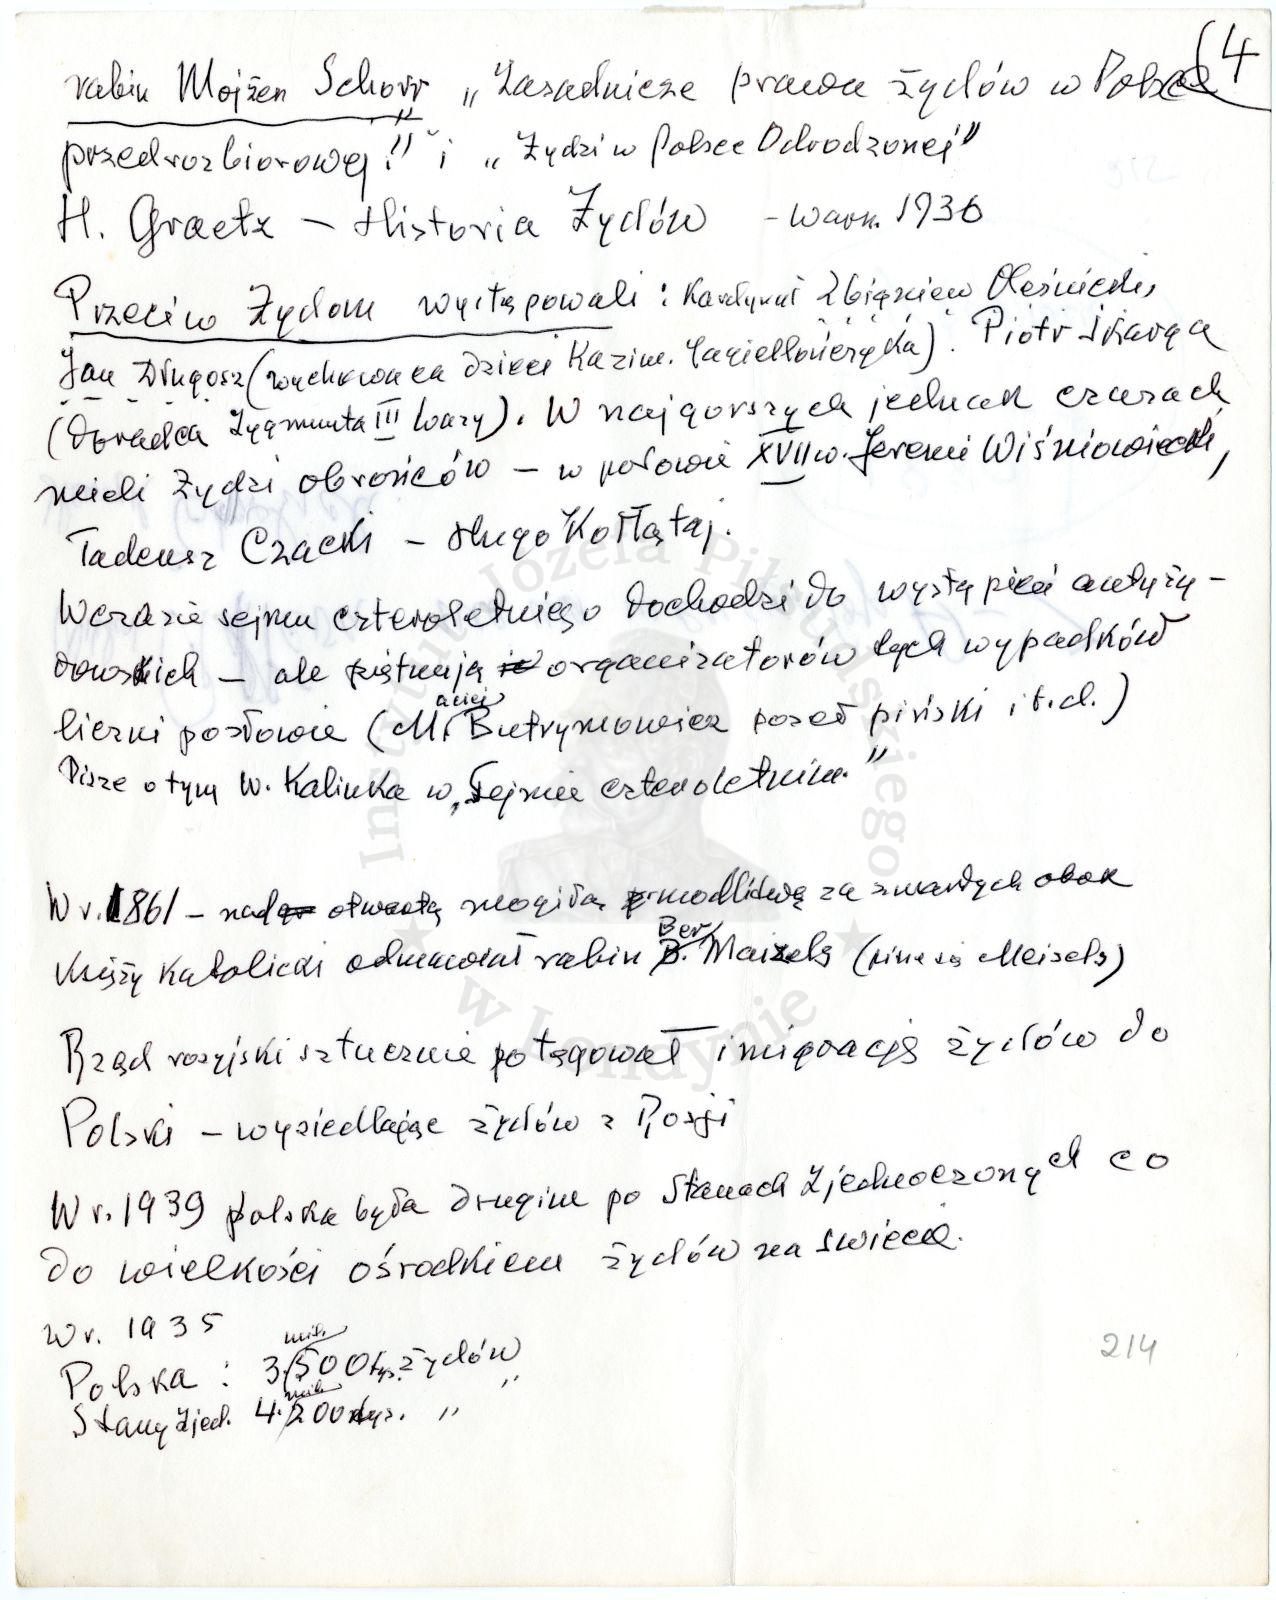 (4
rabin Mojżesz Schorr „Zasadnicze prawa żydów w Polsce
przedrozbiorowej" i „Żydzi w Polsce Odrodzonej"
H. Graetz – Historia Żydów – Warsz. 1936
Przeciw Żydom występowali: Kardynał Zbigniew Oleśnicki,
Jan Długosz (wychowawca dzieci Kazim. Jagiellończyka). Piotr Skarga
(doradca Zygmunta III Wazy). W najgorszych jednak czasach
mieli Żydzi obrońców – w połowie XVII w. Jeremi Wiśniowiecki,
Tadeusz Czacki – Hugo Kołłątaj.
W czasie sejmu czteroletniego dochodzi do wystąpień antyży-
dowskich – ale piętnują organizatorów tych wypadków
liczni posłowie (Maciej Butrymowicz poseł piński i t.d.)
Pisze o tym W. Kalinka w „Sejmie czteroletnim."
W r. 1861 – nad otwartą mogiłą modlitwę za zmarłych obok
księży katolicki odmawiał rabin Ber Maizels (pisze się Meisels)
Rząd rosyjski sztucznie potęgował imigrację żydów do
Polski – wysiedlając żydów z Rosji
W r. 1939 Polska była drugim po Stanach Zjednoczonych co
do wielkości ośrodkiem żydów na świecie.
W r. 1935
Polska : 3 mil. 500 tys. żydów
Stany Zjed. 4 mil. 200 tys. „ „
214
Instytut Józefa Piłsudskiego
w Londynie